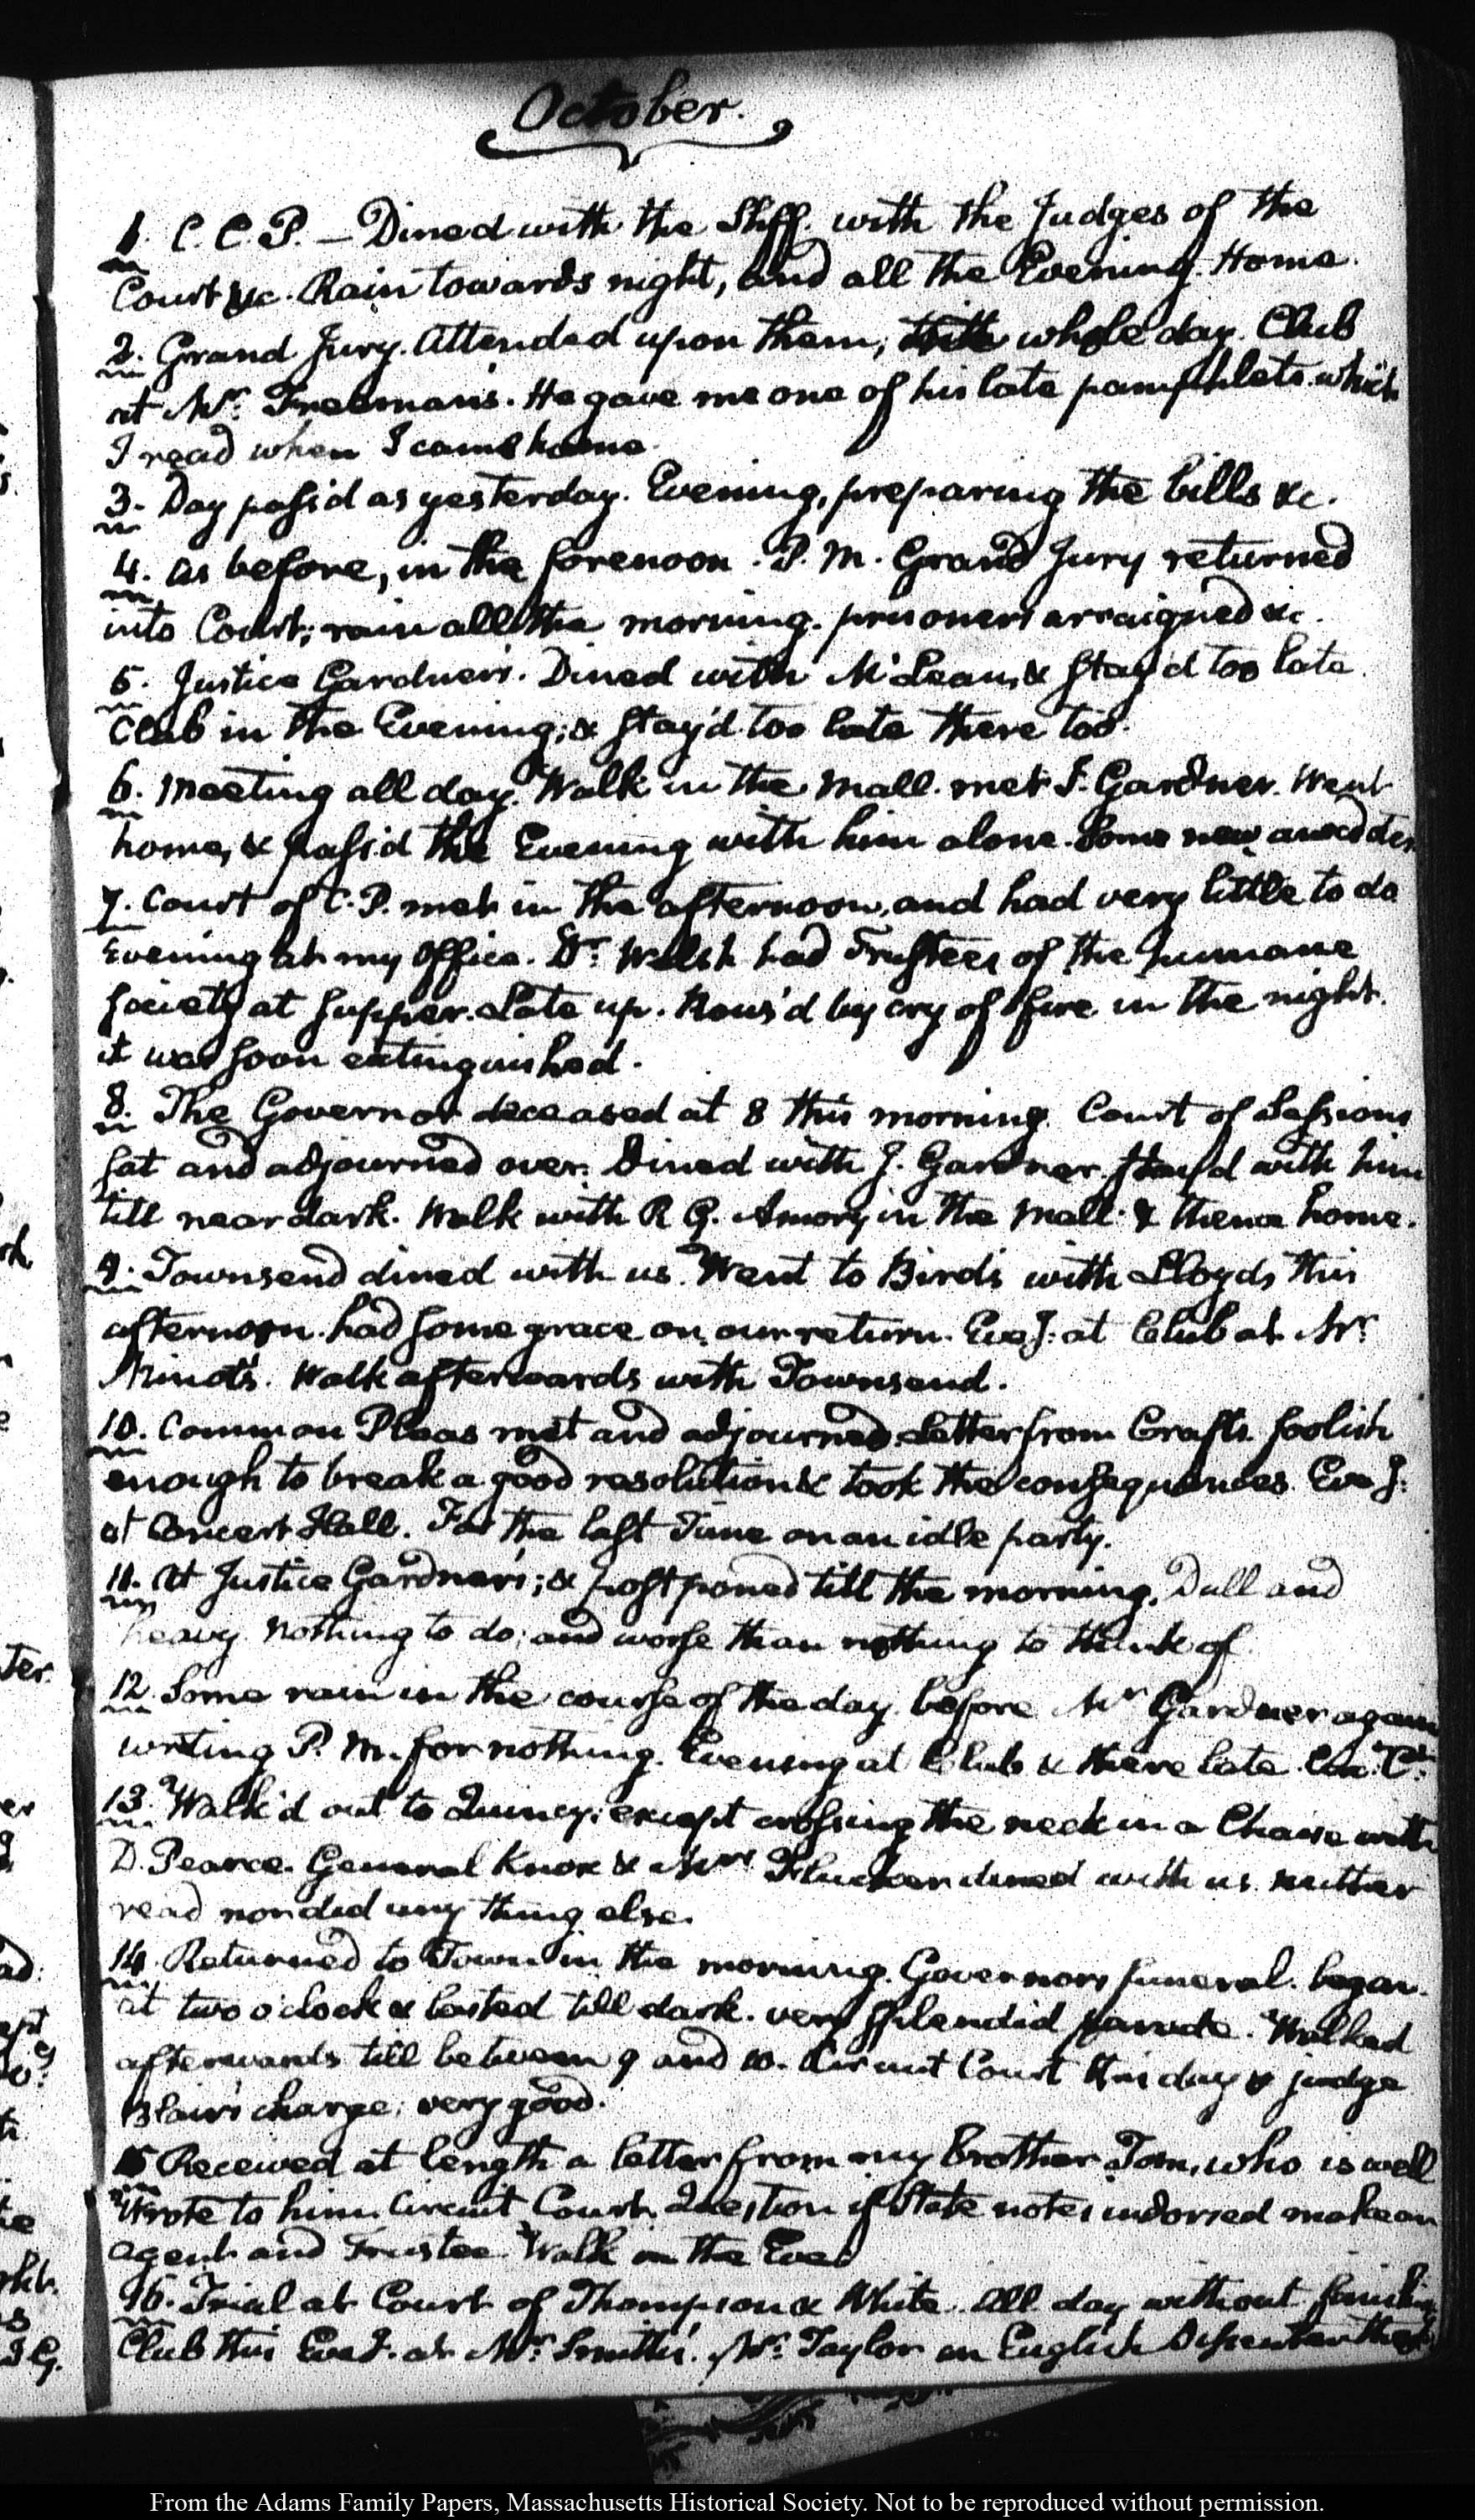 October.
1. C. C. P. — Dined with the Shff. with the Judges of the
Court &c. Rain towards night, and all the Evening. Home.
2. Grand Jury. Attended upon them, whole day. Club
at Mr. Freeman's. He gave me one of his late pamphlets which
I read when I came home.
3. Day pass'd as yesterday. Evening, preparing the bills &c.
4. As before, in the forenoon. P. M. Grand Jury returned
into Court; rain all the morning. prisoners arraigned &c.
5. Justice Gardner's. Dined with McLean, & stay'd too late.
Club in the Evening; & stay'd too late there too.
6. Meeting all day. Walk in the Mall. met J. Gardner. Went
home, & pass'd the Evening with him alone. Some new anecdotes
7. Court of C. P. met in the afternoon, and had very little to do
Evening at my Office. Dr. Welsh had Trustees of the humane
Society at supper. Late up. Rous'd by cry of fire in the night.
it was soon extinguished.
8. The Governor deceased at 8 this morning. Court of Sessions
sat and adjourned over. Dined with J. Gardner. stay'd with him
till near dark. Walk with R G. Amory in the Mall. & thence home.
9. Townsend dined with us. Went to Bird's with Lloyds this
afternoon. had some grace on our return. Eveg: at Club at Mr.
Minot's. Walk afterwards with Townsend.
10. Common Pleas met and adjourned. Letter from Crafts. foolish
enough to break a good resolution & took the consequences. Eveg:
at Concert Hall. For the last Time on an idle party.
11. At Justice Gardner's; & postponed till the morning. Dull and
heavy. nothing to do; and worse than nothing to think of.
12. Some rain in the course of the day. before Mr. Gardner again
writing P. M. for nothing. Evening at Club & there late.
13. Walk'd out to Quincy; except crossing the neck in a Chaise with
D. Pearce. General Knox & Mrs. Flucker dined with us. neither
read nor did any thing else.
14. Returned to Town in the morning. Governors funeral. began
at two o'clock & lasted till dark. very splendid parade. Walked
afterwards till between 9 and 10. Circuit Court this day & judge
Blair's charge; very good.
15 Received at length a letter from my Brother Tom, who is well
Wrote to him. Circuit Court. Question if State notes indorsed make an
agent and Trustee. Walk in the Eveg
16. Trial at Court of Thompson & White. All day without finishing
Club this Eveg. at Mr. Smith's. Mr. Taylor an English Dissenter there